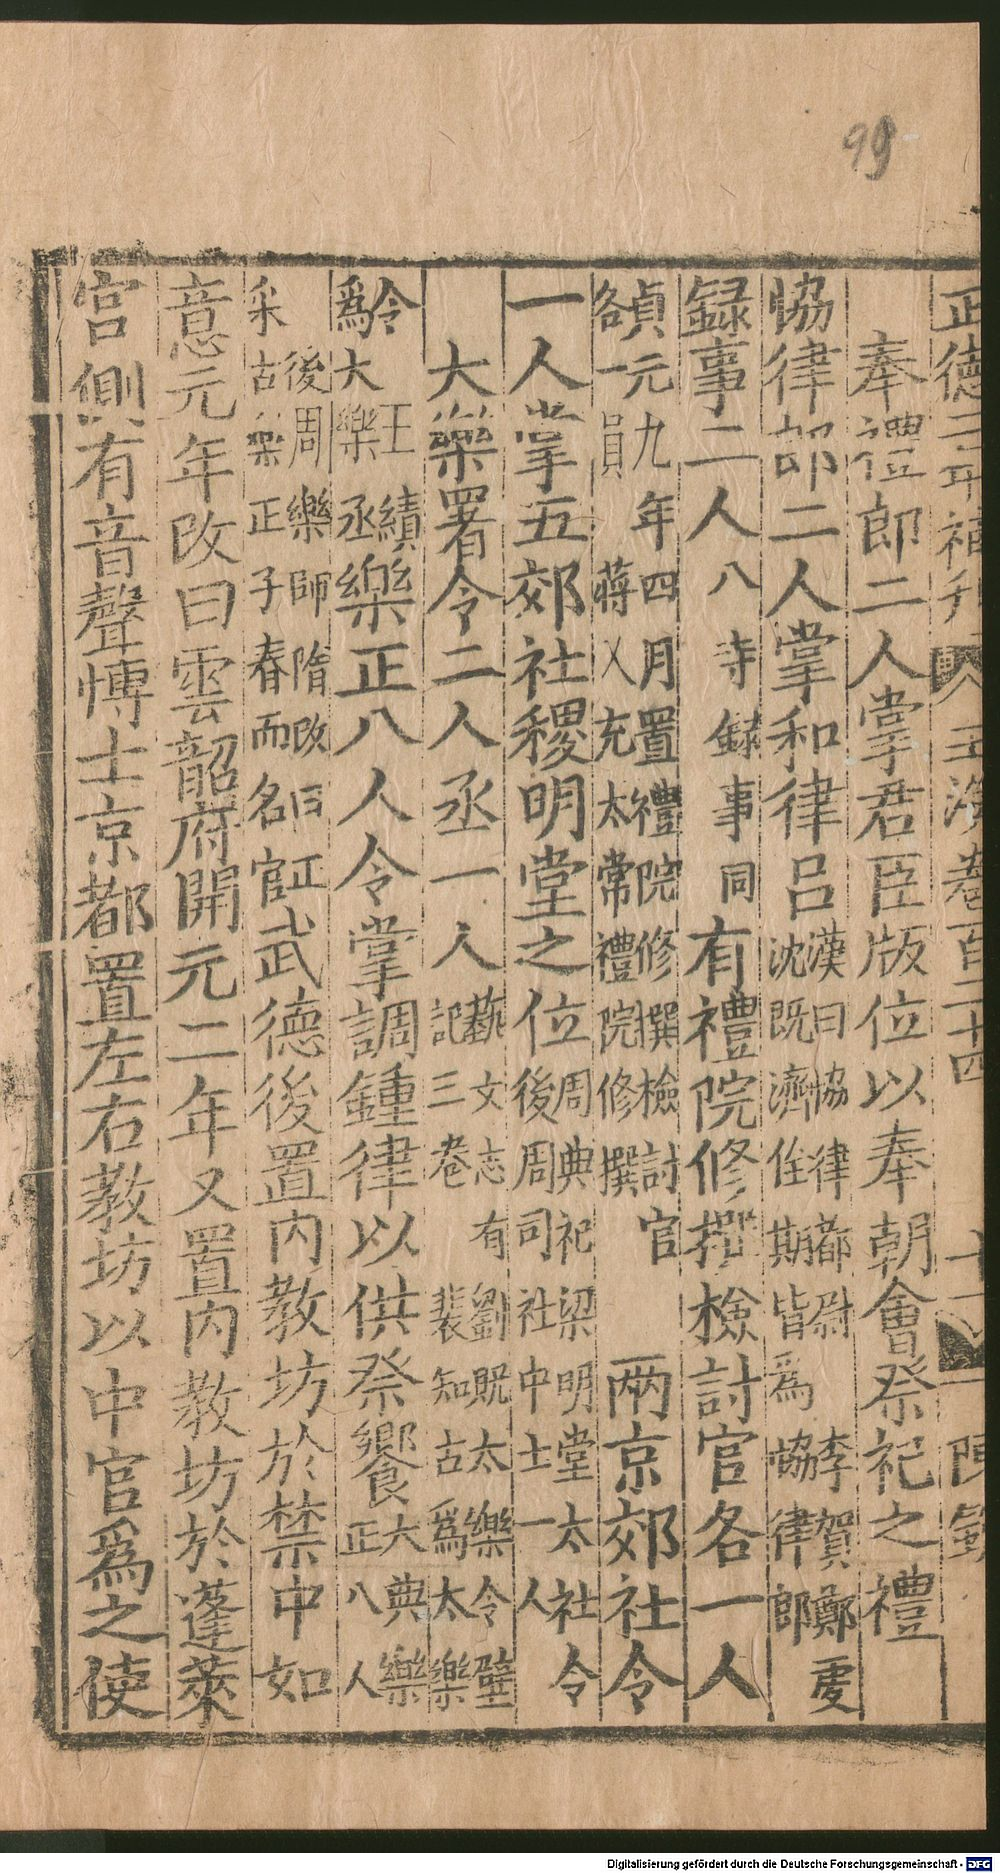 99
正德二年補刊 玉海卷百二十四 十一 陳
奉禮郎二人掌君臣版位以奉朝會祭祀之禮
協律郎二人掌和律呂漢曰協律都尉李賀鄭覃沈既濟任期皆爲協律郎
録事二人八寺録事同有禮院修撰檢討官各一人
貞元九年四月置禮院修撰檢討官各一員蔣乂充太常禮院修撰兩京郊社令
一人掌五郊社稷明堂之位周典祀梁明堂太社令後周司社中士一人
大樂署令二人丞一人藝文志有劉貺太樂令壁記三卷裴知古爲太樂
令王績爲大樂丞樂正八人令掌調鍾律以供祭饗大典樂正八人
後周樂師隋改曰正采古樂正子春而名官武德後置内教坊於禁中如
意元年改曰雲韶府開元二年又置内教坊於蓬萊
宫側有音聲博士京都置左右教坊以中官爲之使
Digitalisierung gefördert durch die Deutsche Forschungsgemeinschaft - DFG